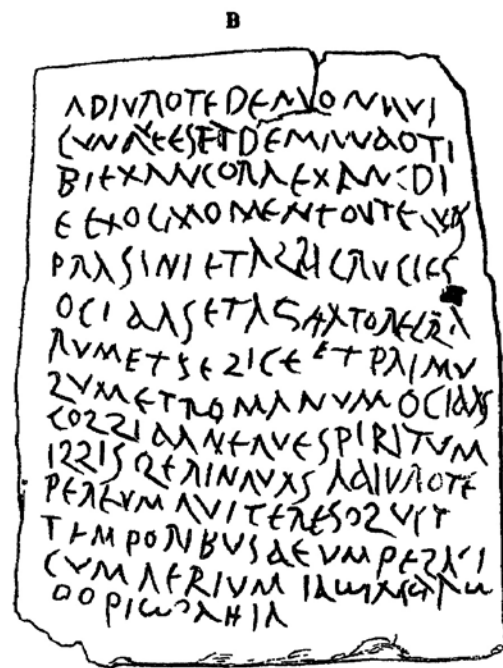 B
ADIVROTEDEMONQVI
CVNQVEESETDEMANDOTI
BIEXANCORAEXANCDI
EEXOCMOMENTOVTEQVOS
PRASINIETALBICRVCIES
OCIDASETAGITATORECLA
RVMETFELICEETPRIMV
LVMETROMANVMOCIDAS
COLLIDANEQVESPIRITVM
ILLISLERINQVASADIVROTE
PEREVMQVITERESOLVIT
TEMPORIBVSDEVMPELAGI
CVMAERIVM